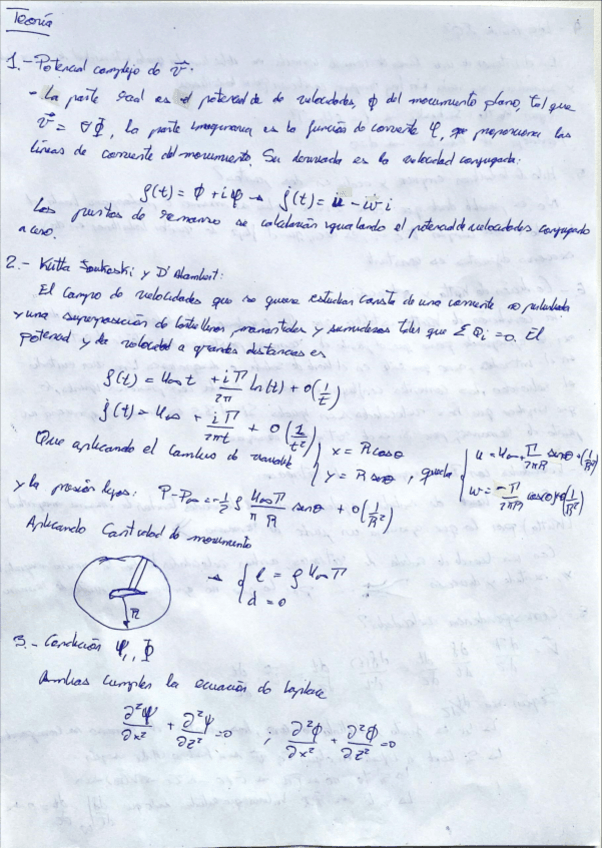 Teoría
1.- Potencial complejo de v⃗.
- La parte real es el potencial de velocidades, ϕ del movimiento plano, tal que
v⃗ = ∇Φ, la parte imaginaria es la función de corriente ψ, que proporciona las
líneas de corriente del movimiento. Su derivada es la velocidad conjugada:
f(t) = ϕ + iψ → ḟ(t) = u - iw i
Los puntos de remanso se calcularán igualando el potencial de velocidades conjugado
a cero.
2.- Kutta Joukoski y D'Alambert:
El campo de velocidades que se quiere estudiar consta de una corriente no perturbada
y una superposición de torbellinos manantiales y sumideros tales que Σ Qi = 0. El
potencial y la velocidad a grandes distancias es
f(t) = U∞ t + iΓ/2π ln(t) + O(1/t)
ḟ(t) = U∞ + iΓ/2πt + O(1/t²)
Que aplicando el cambio de variable { x = R cosθ y = R senθ , queda { u = U∞ + Γ/2πR senθ + (1/R²) w = -Γ/2πR cosθ + O(1/R²)
y la presión lejos: P-P∞ = -1/2 ρ U∞Γ/πR senθ + O(1/R²)
Aplicando Cantidad de movimiento
R → { l = ρ U∞ Γ d = 0
3.- Condición ψ, Φ
Ambas cumplen la ecuación de Laplace
∂²ψ/∂x² + ∂²ψ/∂z² = 0 , ∂²ϕ/∂x² + ∂²ϕ/∂z² = 0